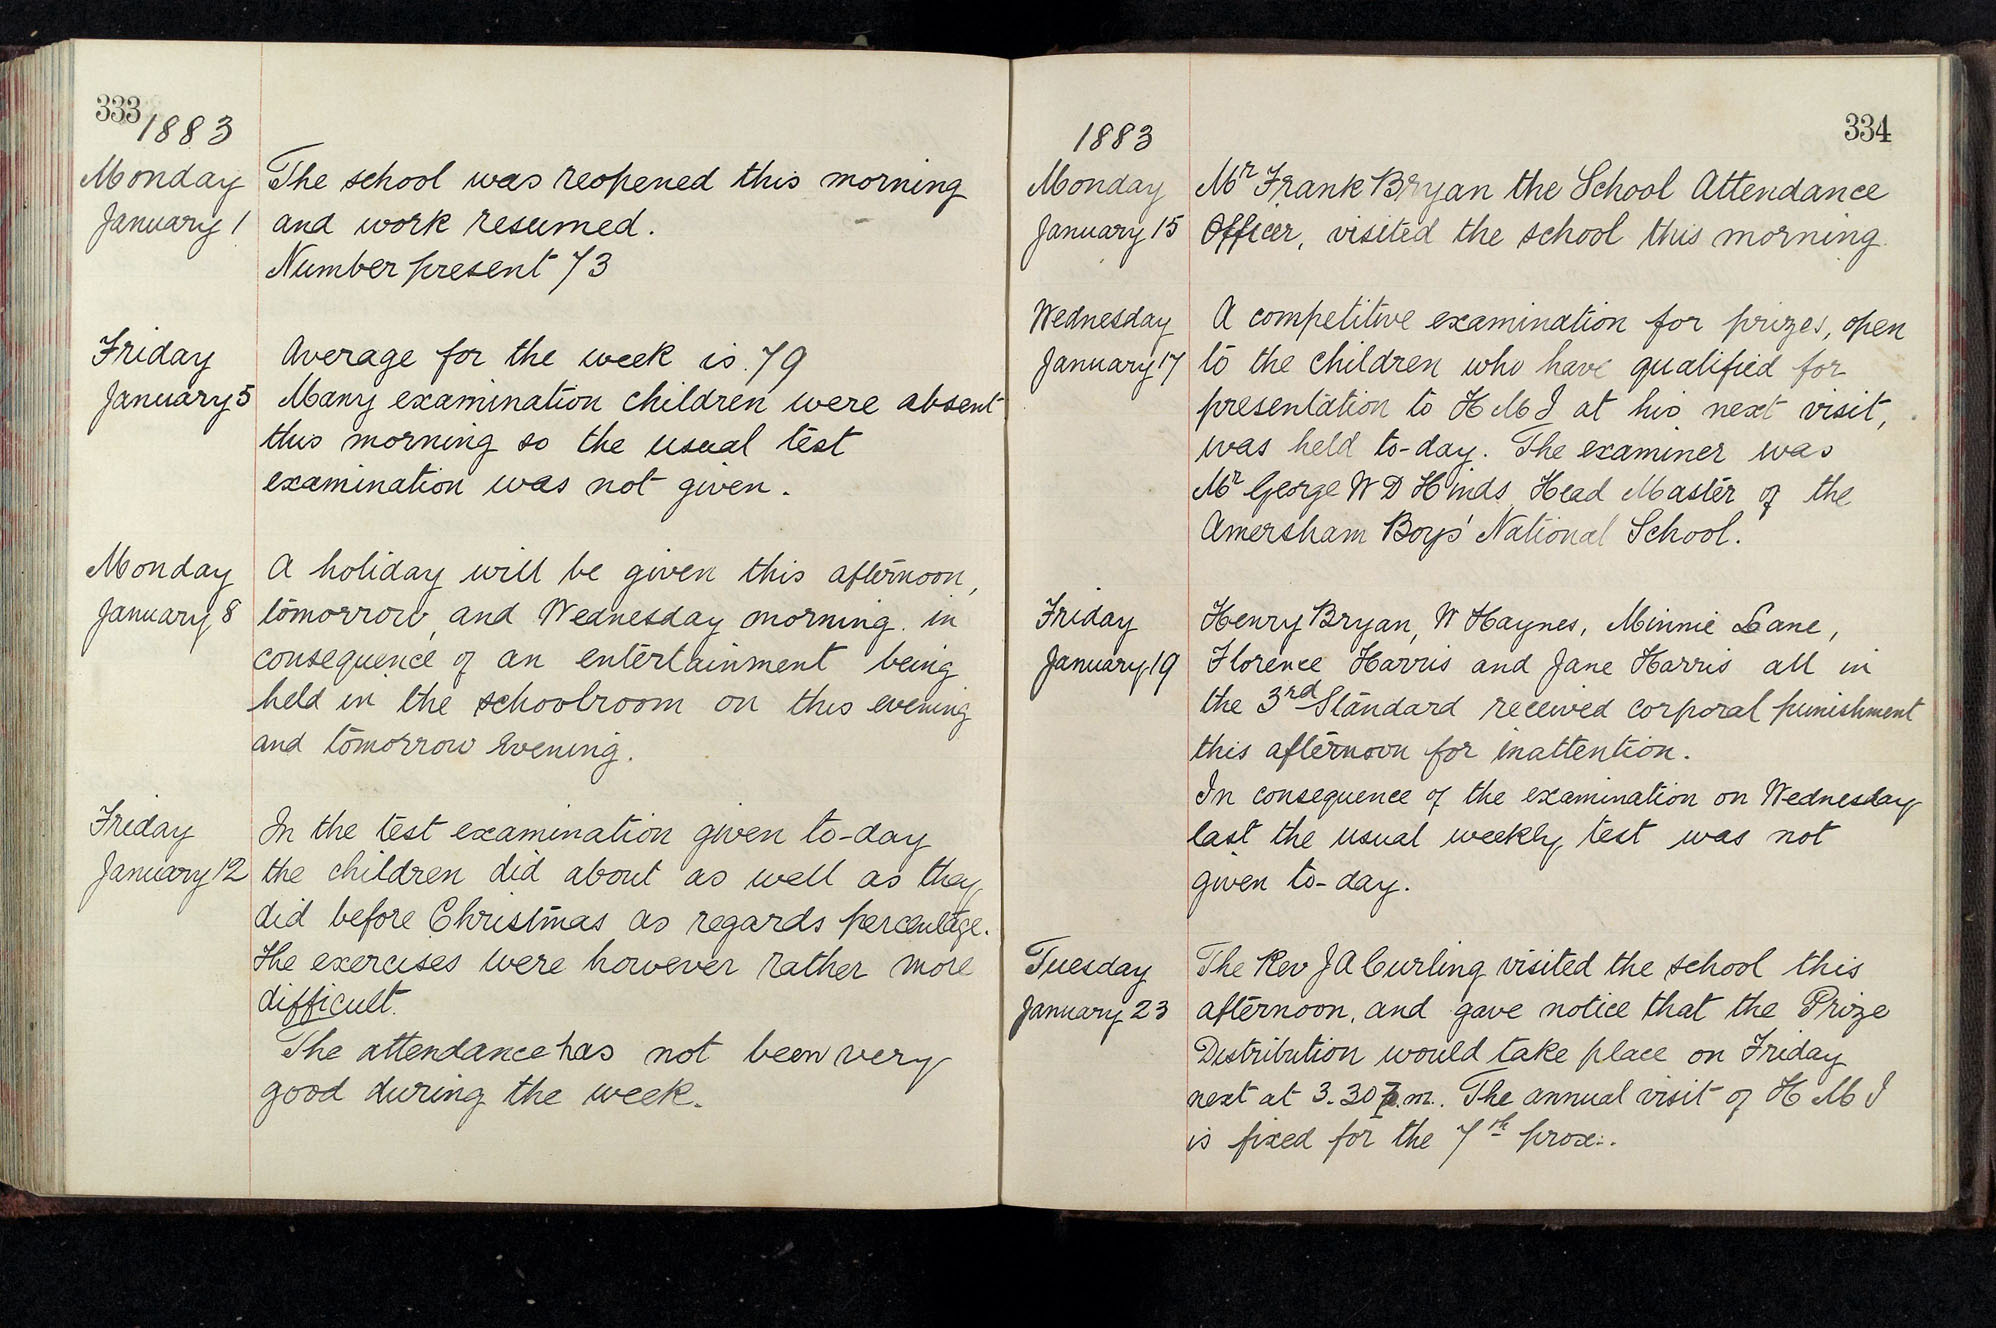 333
1883
Monday
January 1
The school was reopened this morning
and work resumed.
Number present 73
Friday
January 5
Average for the week is 79
Many examination children were absent
this morning so the usual test
examination was not given.
Monday
January 8
A holiday will be given this afternoon,
tomorrow, and Wednesday morning in
consequence of an entertainment being
held in the schoolroom on this evening
and tomorrow evening.
Friday
January 12
In the test examination given to-day
the children did about as well as they
did before Christmas as regards percentage.
The exercises were however rather more
difficult.
The attendance has not been very
good during the week.
334
1883
Monday
January 15
Mr Frank Bryan the School Attendance
Officer, visited the school this morning.
Wednesday
January 17
A competitive examination for prizes, open
to the children who have qualified for
presentation to H M I at his next visit,
was held to-day. The examiner was
Mr George W D Hinds Head Master of the
Amersham Boys' National School.
Friday
January 19
Henry Bryan, W Haynes, Minnie Lane,
Florence Harris and Jane Harris all in
the 3rd Standard received corporal punishment
this afternoon for inattention.
In consequence of the examination on Wednesday
last the usual weekly test was not
given to-day.
Tuesday
January 23
The Rev J A Curling visited the school this
afternoon, and gave notice that the Prize
Distribution would take place on Friday
next at 3.30 p.m. The annual visit of H M I
is fixed for the 7th prox:.